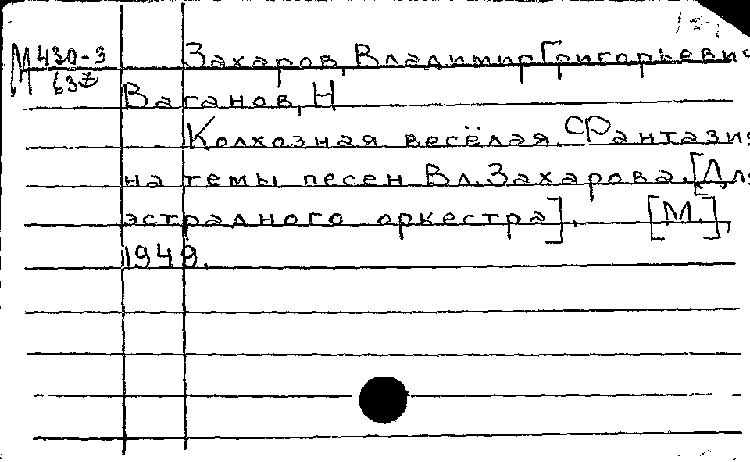 М 430-3 Захаров, Владимир Григорьевич
637
Ваганов, Н
Колхозная весёлая. Фантазия
на темы песен Вл. Захарова. [Для
эстрадного оркестра]. [М.],
1949.